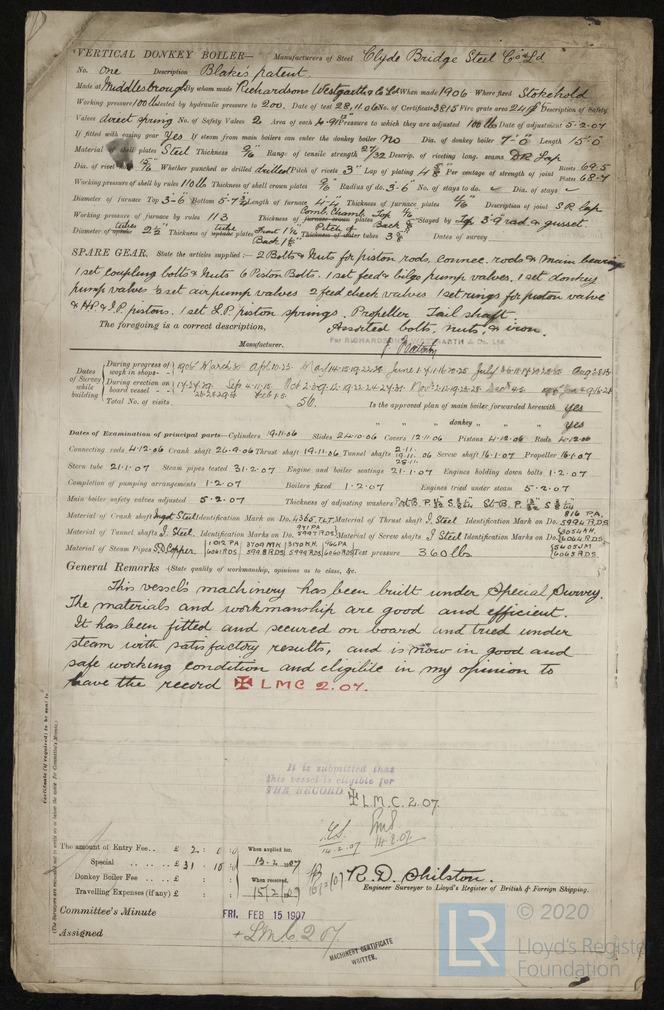 VERTICAL DONKEY BOILER— Manufacturers of Steel Clyde Bridge Steel Co Ld
No. One Description Blake's patent.
Made at Middlesbrough By whom made Richardsons Westgarth & Co Ld When made 1906 Where fixed Stokehold
Working pressure 100 lb tested by hydraulic pressure to 200. Date of test 28.11.06 No. of Certificate 3815 Fire grate area 24 Description of Safety
Valves direct spring No. of Safety Valves 2 Area of each 4.91 Pressure to which they are adjusted 100 lb Date of adjustment 5.2.07
If fitted with easing gear Yes If steam from main boilers can enter the donkey boiler No Dia. of donkey boiler 7'-0" Length 15'-0"
Material of shell plates Steel Thickness 9/16 Range of tensile strength 27/32 Descrip. of riveting long. seams D.R. Lap
Dia. of rivet holes 15/16 Whether punched or drilled drilled Pitch of rivets 3" Lap of plating 4 Per centage of strength of joint Rivets 69.5 Plates 68.7
Working pressure of shell by rules 110 lb Thickness of shell crown plates 9/16 Radius of do. 3'-6" No. of stays to do. ✓ Dia. of stays ✓
Diameter of furnace Top 3'-6" Bottom 5'-7½ Length of furnace 4'-4 Thickness of furnace plates Description of joint S.R. Lap
Working pressure of furnace by rules 113 Thickness of Comb. Chamb. plates Top Back Stayed by Top 3'-9" rad & gusset.
Diameter of tubes 2½" Thickness of tube plates Front Back Pitch of tubes 3 Dates of survey
SPARE GEAR. State the articles supplied:— 2 Bolts & Nuts for piston rods, connec. rods & main bearing
1 set coupling bolts & nuts 6 Piston Bolts. 1 set feed & bilge pump valves. 1 set donkey
pump valves ½ set air pump valves 2 feed check valves 1 set rings for piston valve
& H.P & I.P. pistons. 1 set L.P. piston springs. Propeller Tail shaft.
The foregoing is a correct description, Assorted bolts, nuts, & iron.
For RICHARDSONS, WESTGARTH & Co. Ltd.
Manufacturer.
Dates of Survey while building
During progress of work in shops - -
During erection on board vessel - - -
Total No. of visits 56. Is the approved plan of main boiler forwarded herewith Yes
" " " donkey " " " Yes
Dates of Examination of principal parts—Cylinders 19.11.06 Slides 24.10.06 Covers 12.11.06 Pistons 4.12.06 Rods 4.12.06
Connecting rods 4.12.06 Crank shaft 26.9.06 Thrust shaft 19.11.06 Tunnel shafts 2.11. 19.11.06 28.11. Screw shaft 16.1.07 Propeller 16.1.07
Stern tube 21.1.07 Steam pipes tested 31.2.07 Engine and boiler seatings 21.1.07 Engines holding down bolts 1.2.07
Completion of pumping arrangements 1.2.07 Boilers fixed 1.2.07 Engines tried under steam 5.2.07
Main boiler safety valves adjusted 5.2.07 Thickness of adjusting washers
Material of Crank shaft Ingot Steel Identification Mark on Do. 4365 T.L.T. Material of Thrust shaft I. Steel Identification Mark on Do. 816 P.A. 5994 R.D.S.
Material of Tunnel shafts I. Steel. Identification Marks on Do. 941 PA 5997 R.D.S. Material of Screw shafts I Steel Identification Marks on Do. 6064 R.D.S.
Material of Steam Pipes S.D. Copper 1012 PA 6061 R.D.S. 5998 R.D.S. 5999 R.D.S. 966 PA 6060 R.D.S. Test pressure 360 lbs 6065 R.D.S.
General Remarks (State quality of workmanship, opinions as to class, &c.
This vessel's machinery has been built under Special Survey.
The materials and workmanship are good and efficient.
It has been fitted and secured on board and tried under
steam with satisfactory results, and is now in good and
safe working condition and eligible in my opinion to
have the record ✠ L M C 2.07.
It is submitted that
this vessel is eligible for
THE RECORD ✠ L.M.C. 2.07.
14.2.07
14.2.07
Certificate (if required) to be sent to
(The Surveyors are requested not to write on or below the space for Committee's Minute.)
The amount of Entry Fee .. £ 2 : 0 : 0 When applied for,
Special .. .. .. £ 31 : 10 : 0 13.2.1907
Donkey Boiler Fee .. .. £ : : When received,
Travelling Expenses (if any) £ : : 15/2/07
R. D. Shilston.
Engineer Surveyor to Lloyd's Register of British & Foreign Shipping.
Committee's Minute FRI. FEB 15 1907
Assigned + LMC 2.07
MACHINERY CERTIFICATE
WRITTEN.
LR
© 2020
Lloyd's Register
Foundation